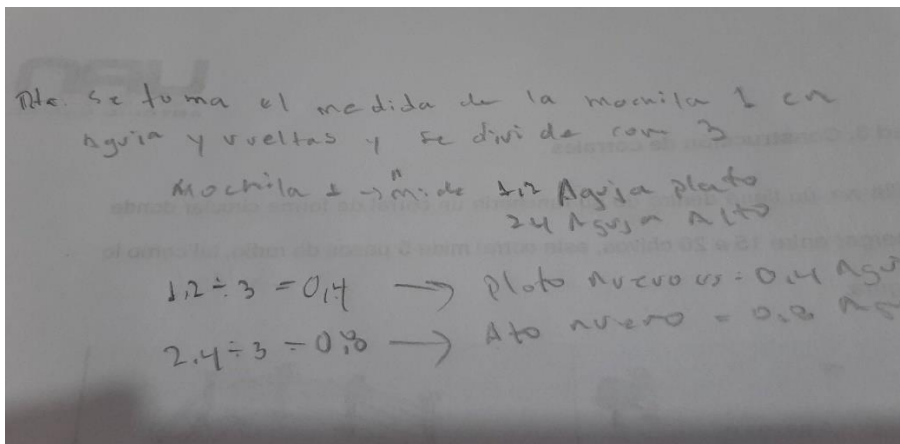 Rta. Se toma el medida de la mochila 1 en
Aguja y vueltas y se divide com 3
Mochila 1 → mide 1,2 Aguja plato
24 Aguja Alto
1,2 ÷ 3 = 0,4 → Plato nuevo es = 0,4 Agu
2.4 ÷ 3 = 0,8 → Alto nuevo = 0,8 Ag